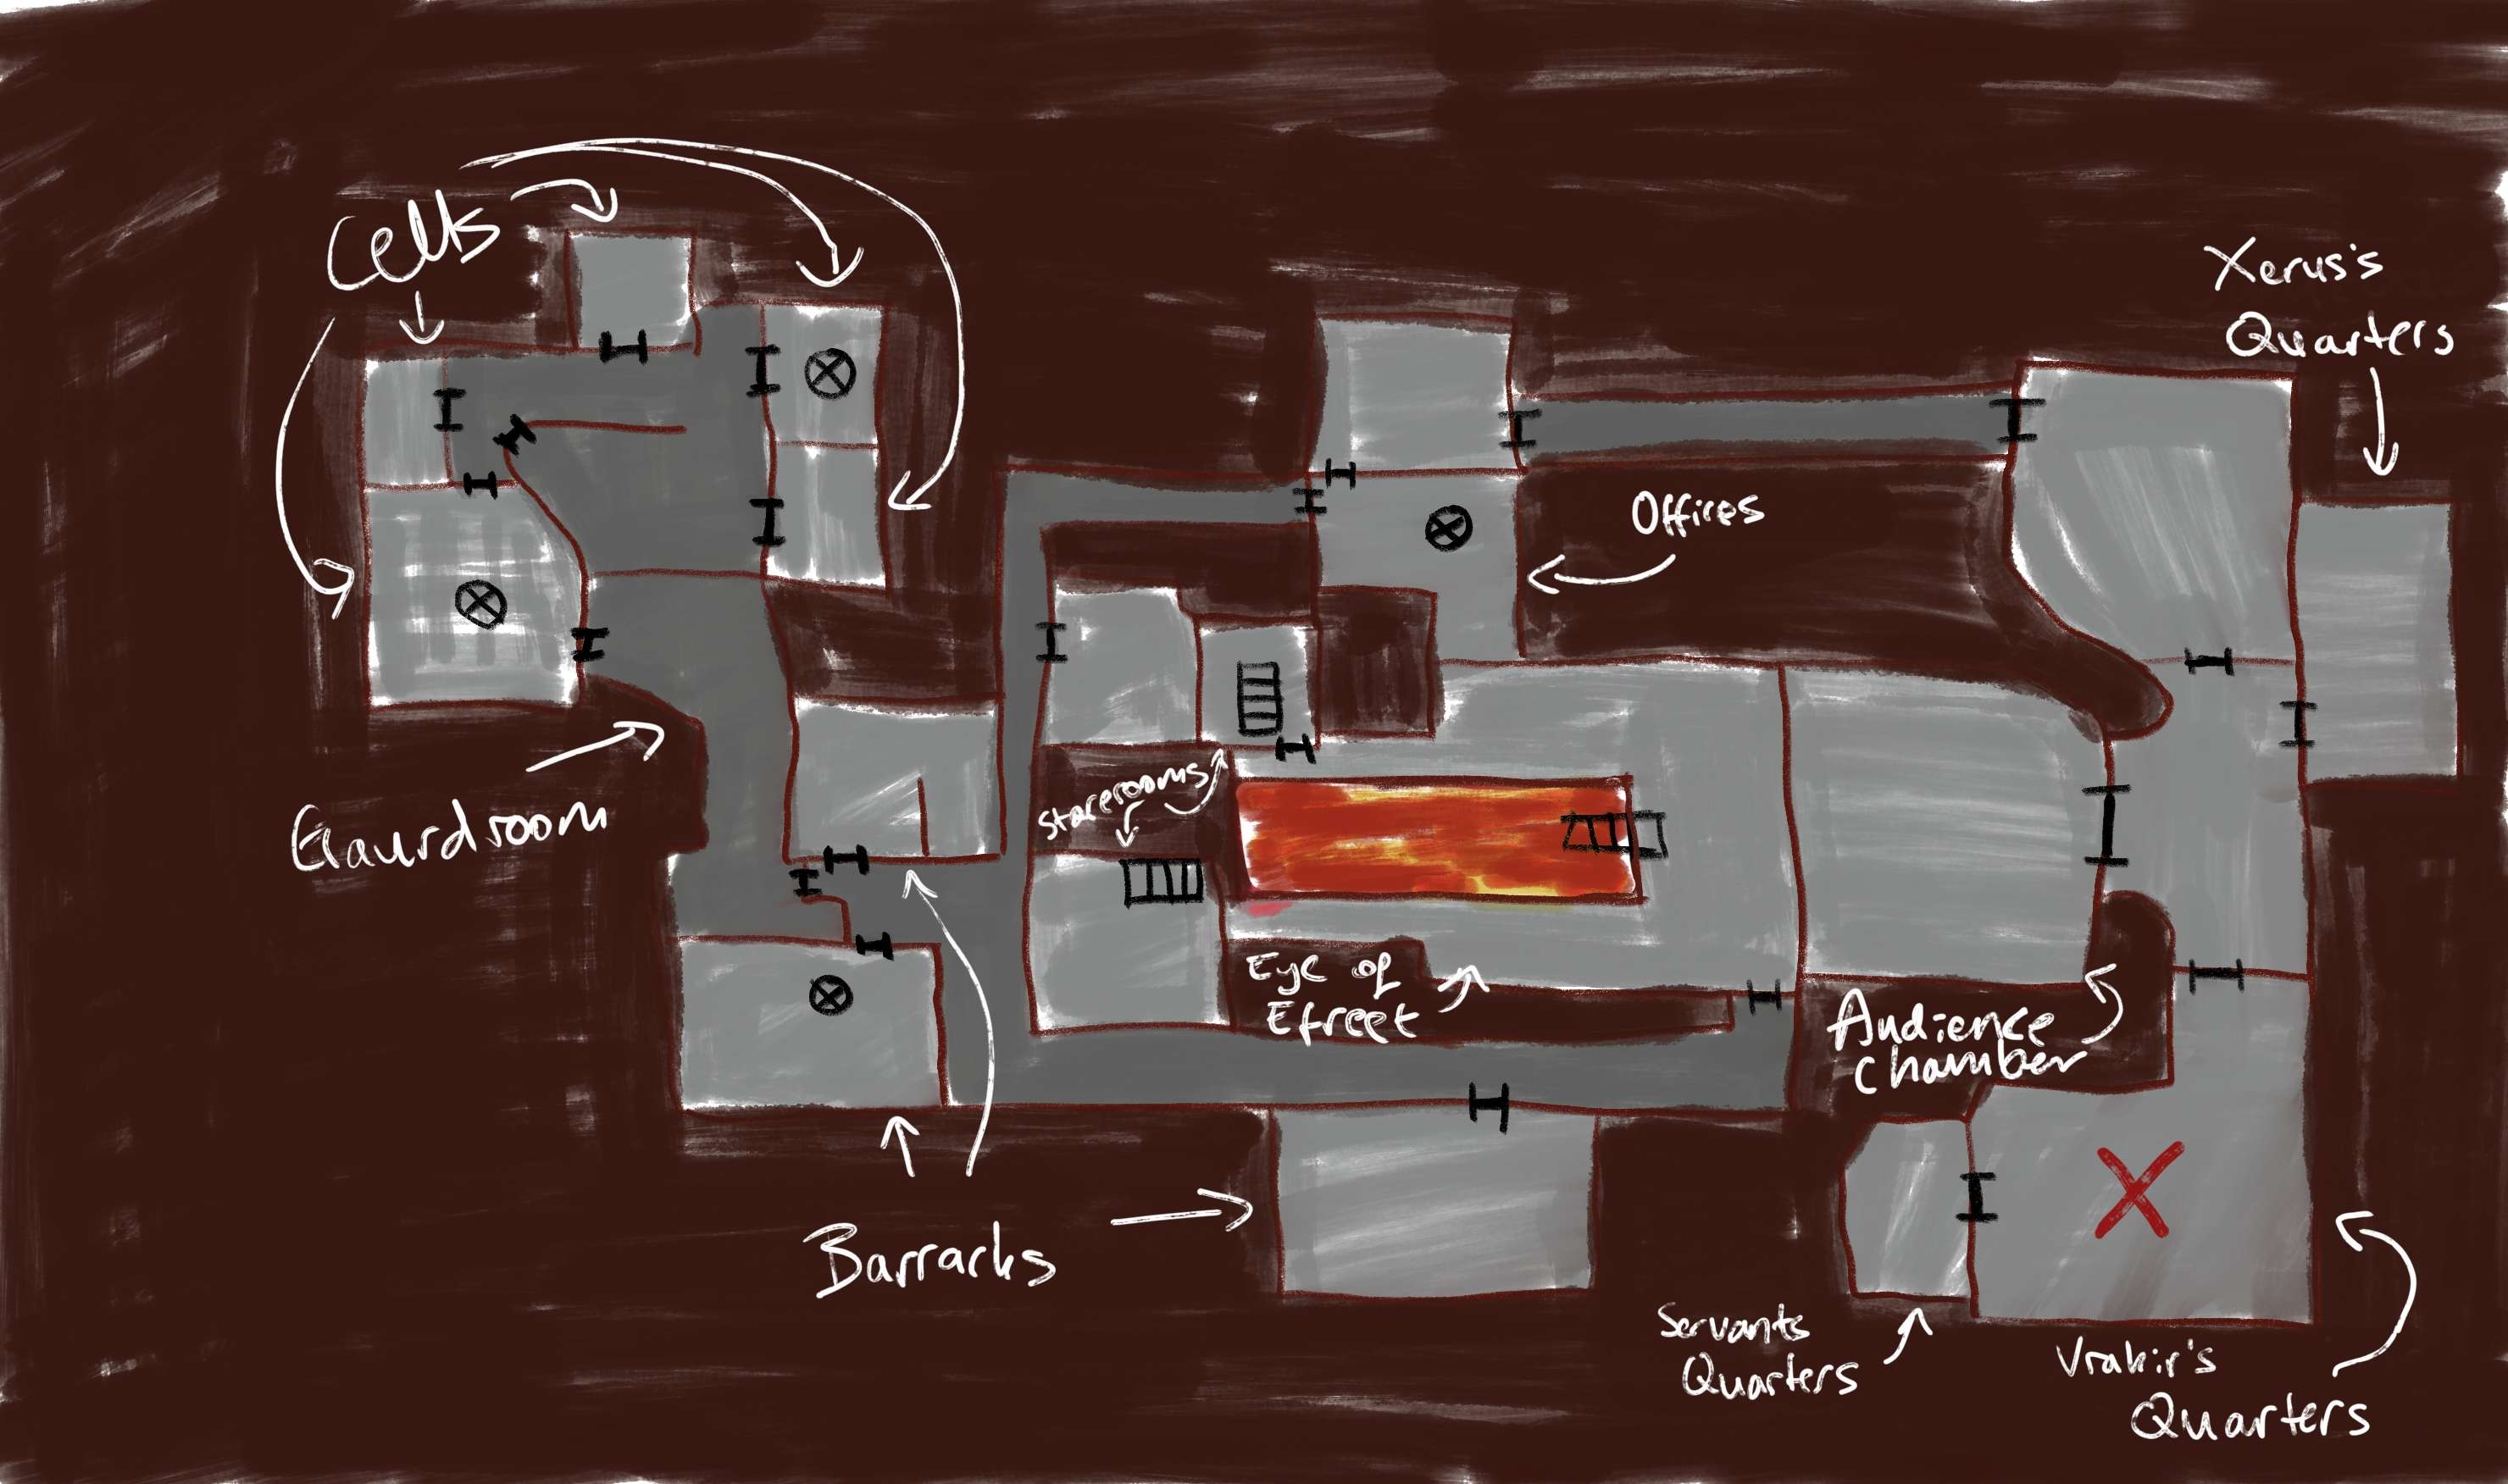 Cells
Xerus's
Quarters
Offires
Gaurdroom
Storerooms
Eye of
Efreet
Audience
Chamber
Barracks
Servants
Quarters
Vrakir's
Quarters